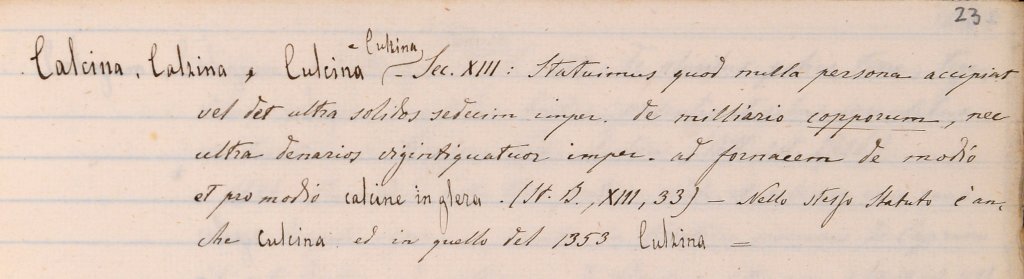 23
Calcina, Calzina, Culcina e Culzina - Sec. XIII: Statuimus quod nulla persona accipiat
vel det ultra solidos sedecim imper. de milliario copporum, nec
ultra denarios vigintiquatuor imper. ad fornacem de modio
et pro modio calcine in glera. (St. B., XIII, 33) - Nello stesso Statuto è an-
che culcina ed in quello del 1353 Culzina =